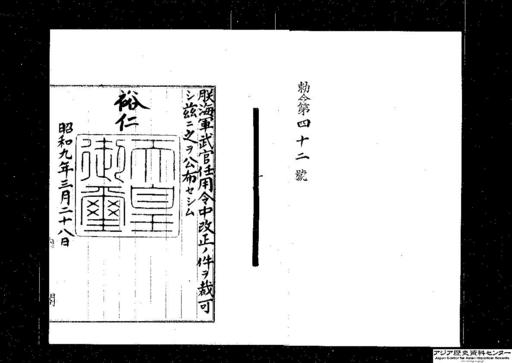 勅令第四十二號
朕海軍武官任用令中改正ノ件ヲ裁可
シ茲ニ之ヲ公布セシム
裕仁
天皇
御璽
昭和九年三月二十八日
内閣
アジア歴史資料センター
Japan Center for Asian Historical Records